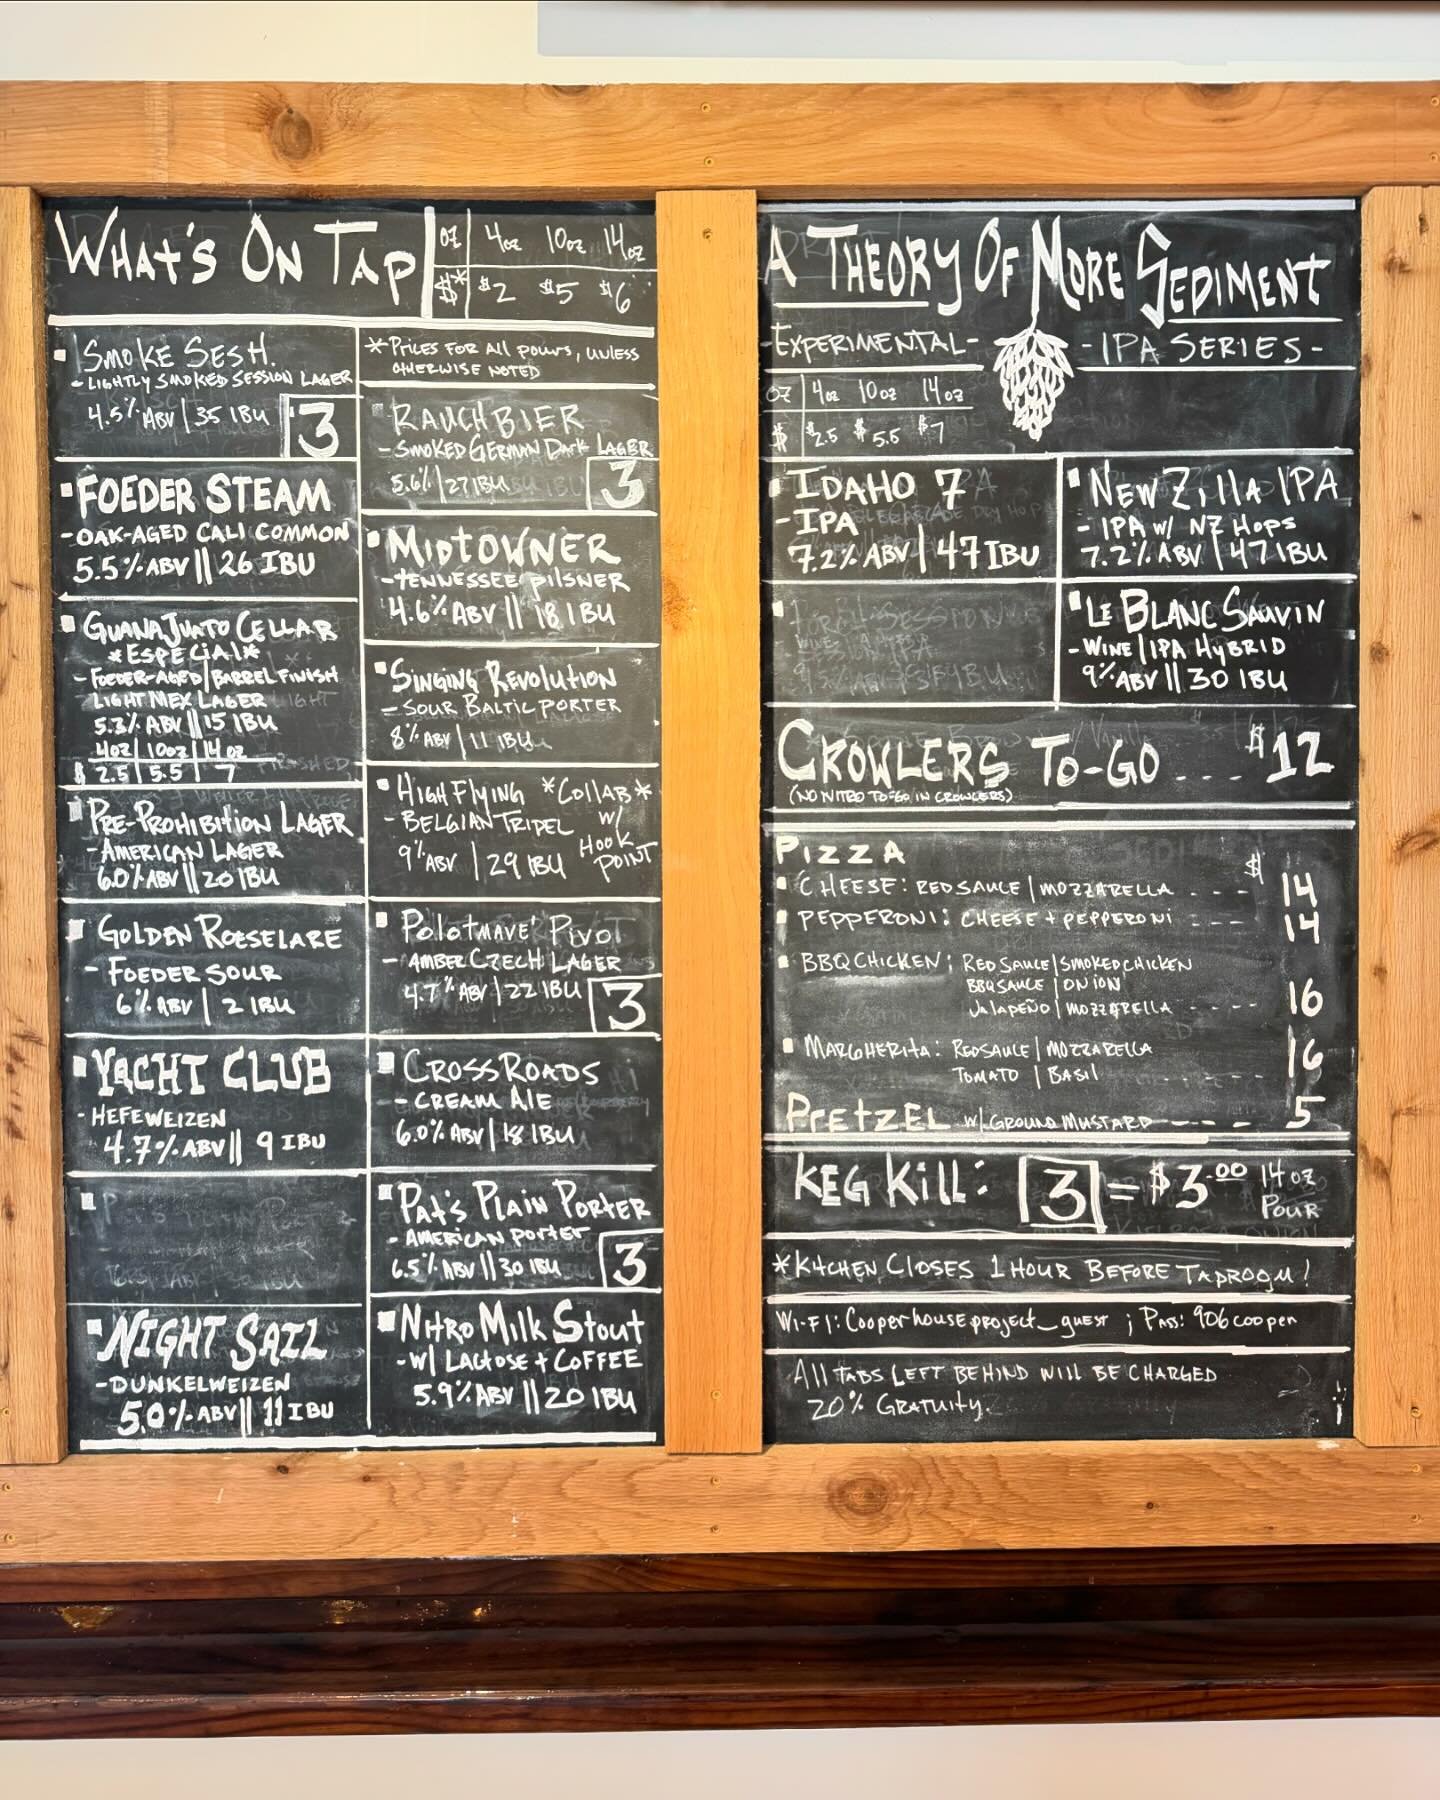 WHAT'S ON TAP
OZ 4oz 10oz 14oz
$* $2 $5 $6
SMOKE SESH.
- LIGHTLY SMOKED SESSION LAGER
4.5% ABV | 35 IBU 3
FOEDER STEAM
- OAK-AGED CALI COMMON
5.5% ABV || 26 IBU
GUANAJUATO CELLAR
*ESPECIAL*
- FOEDER-AGED/BARREL FINISH
LIGHT MEX LAGER
5.3% ABV || 15 IBU
4oz | 10oz | 14oz
$ 2.5 | 5.5 | 7
PRE-PROHIBITION LAGER
- AMERICAN LAGER
6.0% ABV || 20 IBU
GOLDEN ROESELARE
- FOEDER SOUR
6% ABV | 2 IBU
YACHT CLUB
- HEFEWEIZEN
4.7% ABV || 9 IBU
NIGHT SAIL
- DUNKELWEIZEN
5.0% ABV || 11 IBU
* PRICES FOR All POURS, UNLESS
OTHERWISE NOTED
RAUCHBIER
- SMOKED GERMAN DARK LAGER
5.6% | 27 IBU 3
MIDTOWNER
- TENNESSEE PILSNER
4.6% ABV || 18 IBU
SINGING REVOLUTION
- SOUR BALTIC PORTER
8% ABV | 11 IBU
HIGH FLYING *COLLAB*
- BELGIAN TRIPEL W/
9% ABV | 29 IBU HOOK
POINT
POLOTMAVÉ PIVO
- AMBER CZECH LAGER
4.7% ABV | 22 IBU 3
CROSSROADS
- CREAM ALE
6.0% ABV | 18 IBU
PAT'S PLAIN PORTER
- AMERICAN PORTER
6.5% ABV || 30 IBU 3
NITRO MILK STOUT
- W/ LACTOSE + COFFEE
5.9% ABV || 20 IBU
A THEORY OF MORE SEDIMENT
- EXPERIMENTAL - - IPA SERIES -
OZ 4oz 10oz 14oz
$ $2.5 $5.5 $7
IDAHO 7
- IPA
7.2% ABV | 47 IBU
NEW Z,11A IPA
- IPA W/ NZ HOPS
7.2% ABV | 47 IBU
LE BLANC SAUVIN
- WINE | IPA HYBRID
9% ABV || 30 IBU
CROWLERS TO-GO .... $12
(NO NITRO TO-GO IN CROWLERS)
PIZZA $
CHEESE: RED SAUCE | MOZZARELLA - - - - 14
PEPPERONI: CHEESE + PEPPERONI - - - - 14
BBQ CHICKEN: RED SAUCE | SMOKED CHICKEN
BBQ SAUCE | ONION
JALAPEÑO | MOZZARELLA - - - - - 16
MARGHERITA: RED SAUCE | MOZZARELLA
TOMATO | BASIL - - - - - 16
PRETZEL W/ GROUND MUSTARD - - - - 5
KEG KILL: 3 = $3.00 14oz
POUR
*KITCHEN CLOSES 1 HOUR BEFORE TAPROOM!
WI-FI: Cooperhouseproject_guest ; PASS: 906cooper
All TABS LEFT BEHIND WILL BE CHARGED
20% GRATUITY.